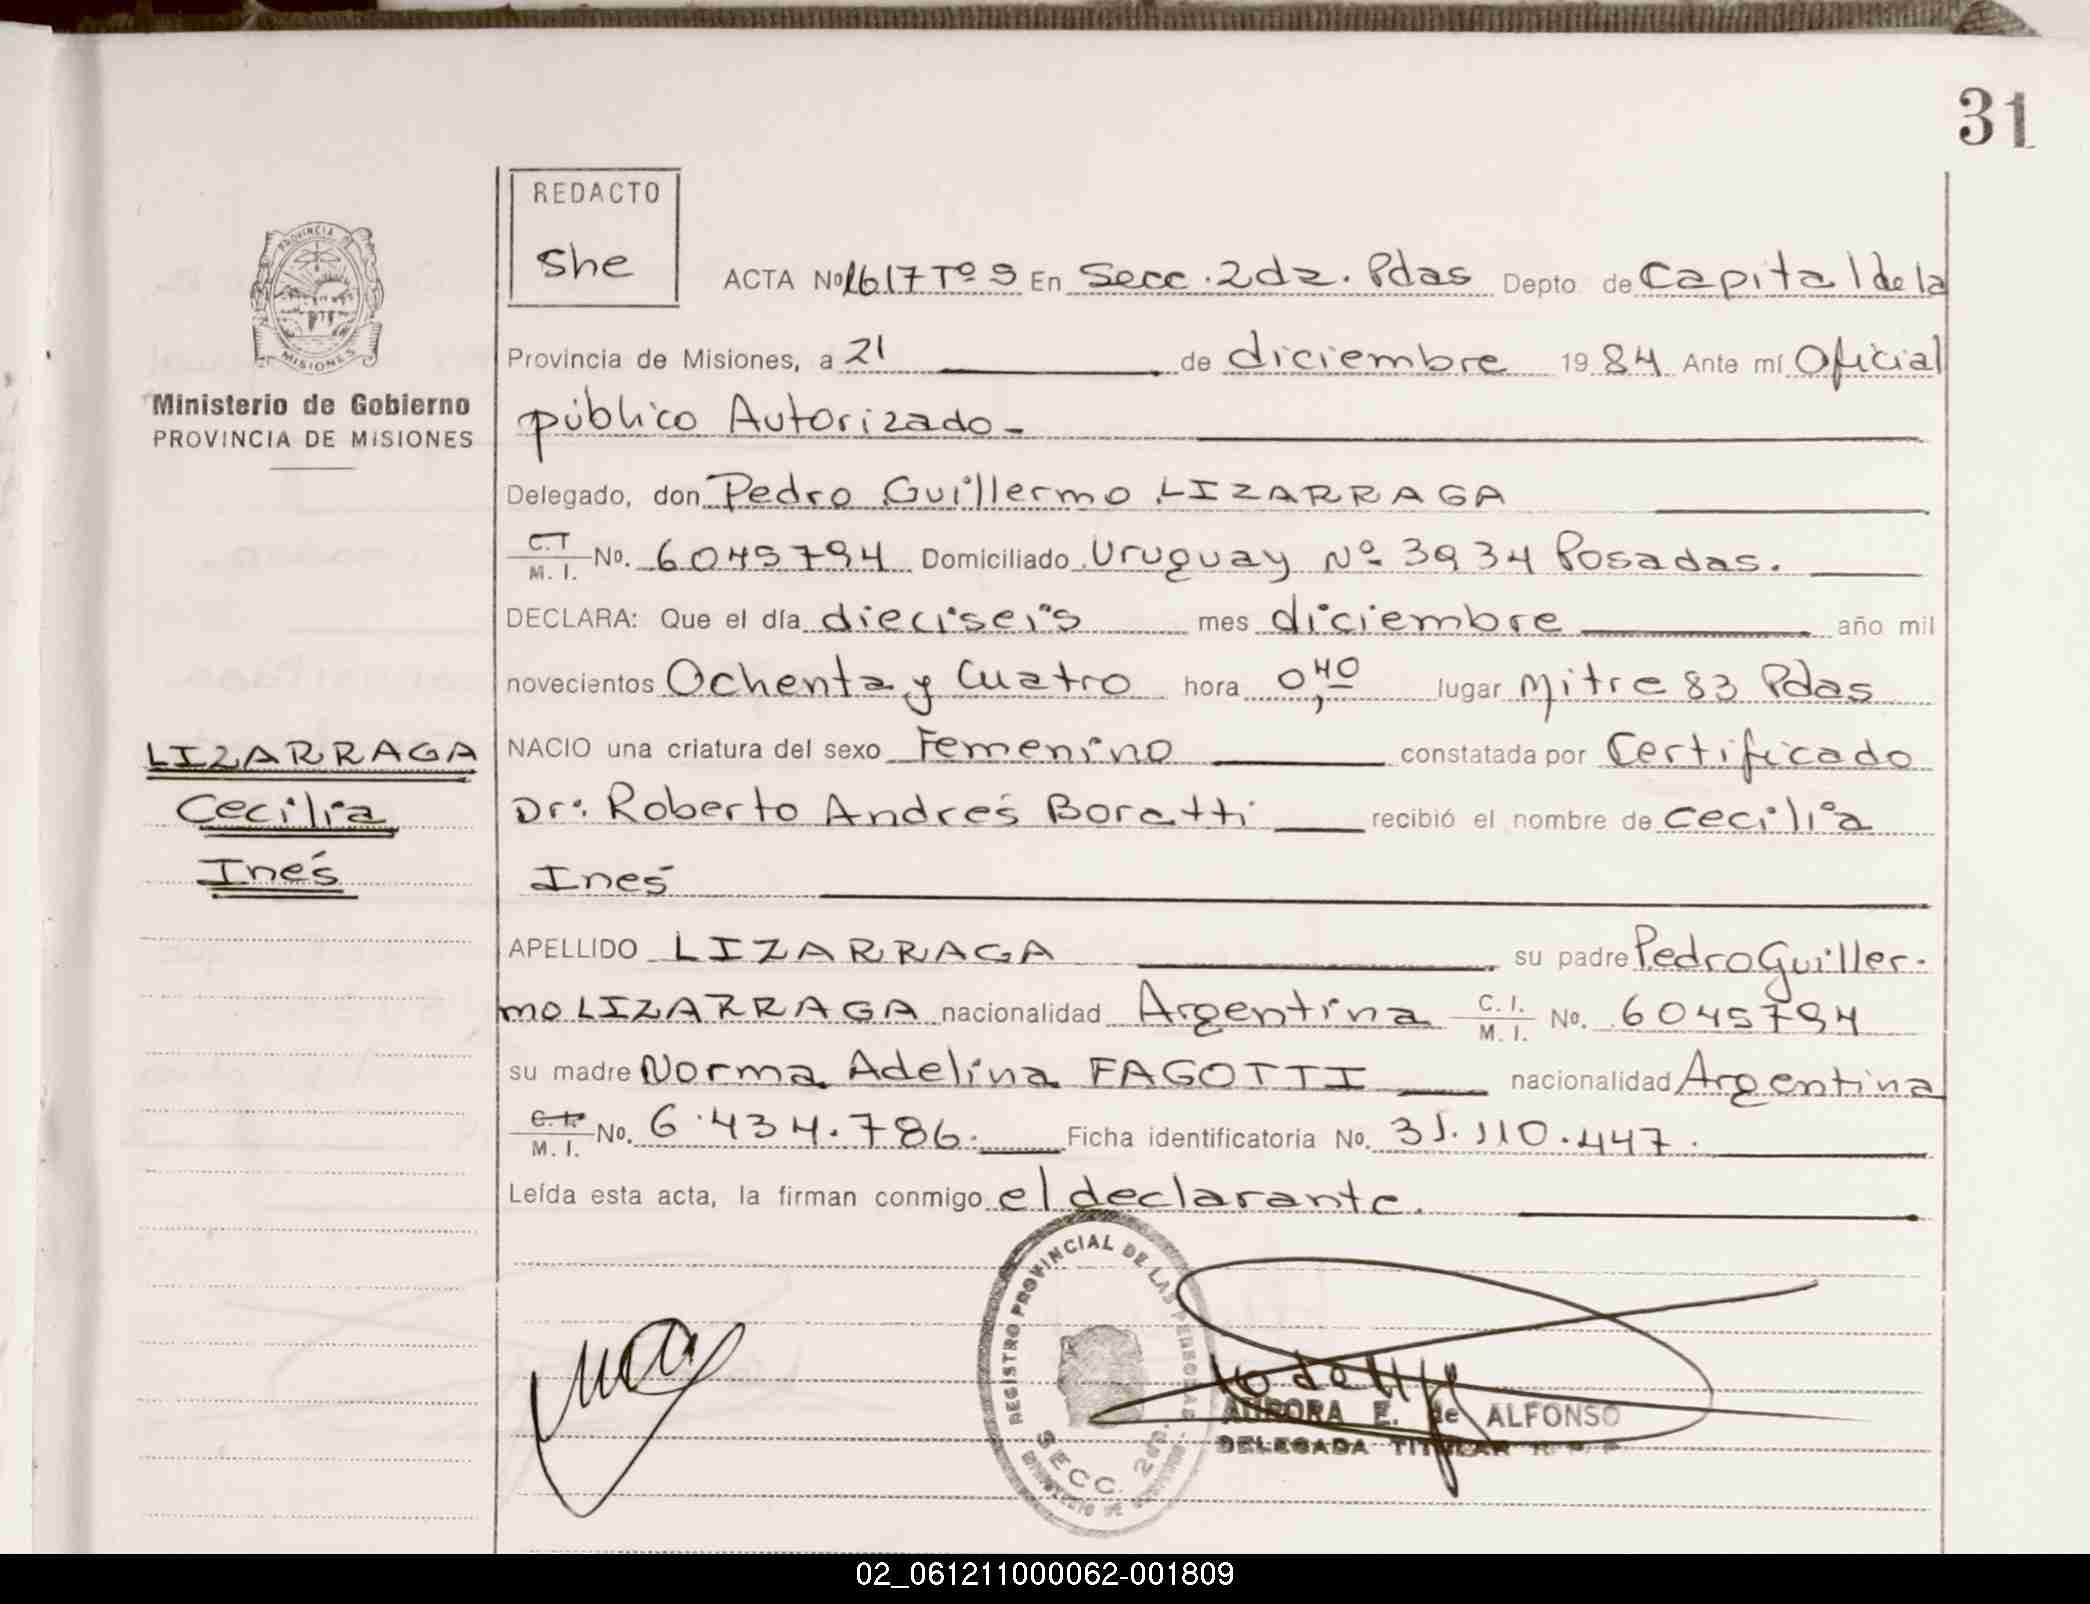 31
REDACTO
she
ACTA Nº 1617 Tº 9 En Secc. 2da. Pdas Depto de Capital de la
PROVINCIA DE MISIONES
Provincia de Misiones, a 21 de diciembre 1984 Ante mí Oficial
Ministerio de Gobierno
PROVINCIA DE MISIONES
público Autorizado-
Delegado, don Pedro Guillermo LIZARRAGA
C.I M. I. No. 6045794 Domiciliado Uruguay Nº 3934 Posadas.
DECLARA: Que el día dieciseis mes diciembre año mil
novecientos Ochenta y Cuatro hora 0,40 lugar Mitre 83 Pdas
LIZARRAGA
NACIO una criatura del sexo Femenino constatada por Certificado
Cecilia
Dr: Roberto Andrés Boratti recibió el nombre de Cecilia
Inés
Inés
APELLIDO LIZARRAGA su padre Pedro Guiller-
mo LIZARRAGA nacionalidad Argentina C. I. M. I. No. 6045794
su madre Norma Adelina FAGOTTI nacionalidad Argentina
C. I. M. I. No. 6.434.786. Ficha identificatoria No. 31.110.447.
Leída esta acta, la firman conmigo el declarante.
REGISTRO PROVINCIAL DE LAS PERSONAS
SECC. 2da.
AURORA E. de ALFONSO
DELEGADA TITULAR
02_061211000062-001809